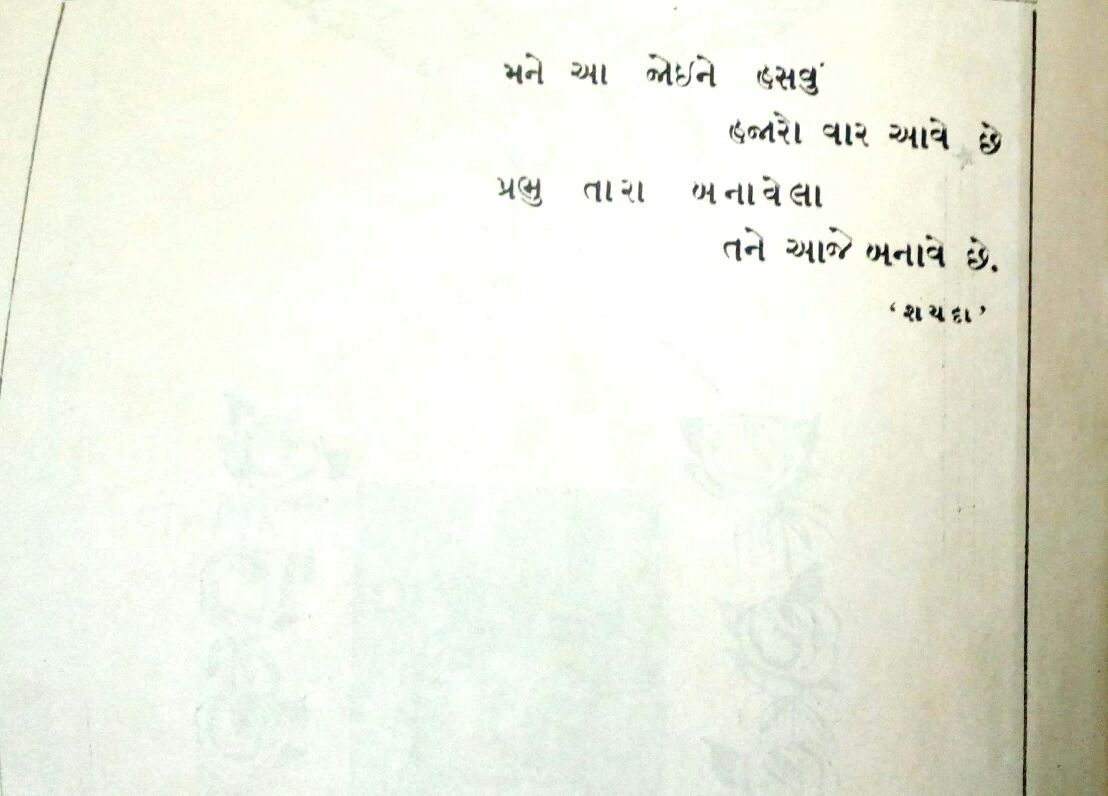 મને આ જોઈને હસવું
હજારો વાર આવે છે
પ્રભુ તારા બનાવેલા
તને આજે બનાવે છે.
‘શયદા’